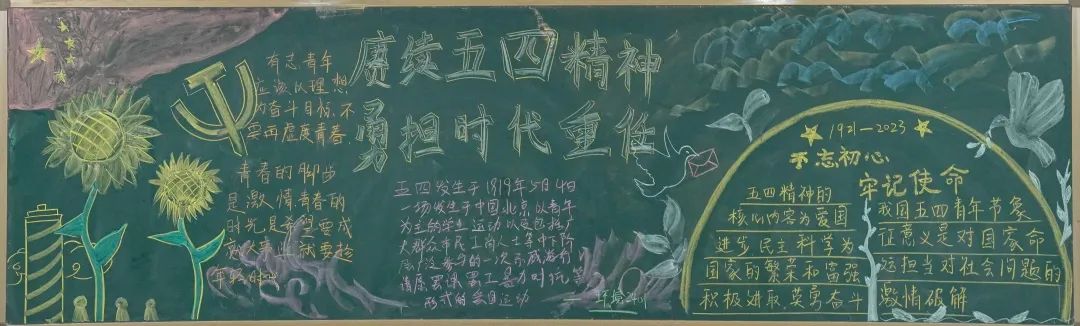 赓续五四精神
勇担时代重任
有志青年
应该以理想
为奋斗目标,不
要再虚度青春
青春的脚步
是激情青春的
时光是希望要成
就要趁
年轻时
五四发生于1819年5月4日
一场发生于中国北京以青年
为主的学生运动以及包括广
大群众市民工商人士等中下阶
层广泛参与的一次示威游行
请愿罢课罢工暴力对抗等
形式的爱国运动
1921—2023
不忘初心
牢记使命
五四精神的
核心内容为爱国
进步民主科学为
国家的繁荣和富强
积极进取英勇奋斗
我国五四青年节象
征意义是对国家命
运担当对社会问题的
激情破解